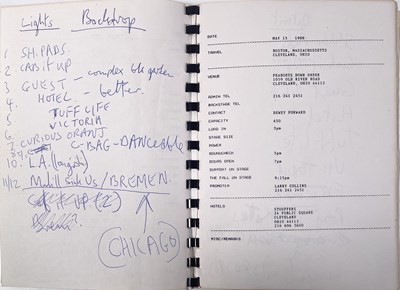 Lights Backdrop
1 SH. PADS.
2. CAB IT UP
3 GUEST - complex
4. HOTEL - better.
5 TUFF LIFE
6 VICTORIA
7. CURIOUS ORANJ
C-BAG - DANCEABLE
10. L.A.
11/12 US/BREMEN.
CHICAGO
DATE MAY 15 1988
TRAVEL BOSTON, MASSACHUSETTS
CLEVELAND, OHIO
VENUE PEABODYS DOWN UNDER
1059 OLD RIVER ROAD
CLEVELAND
OHIO 44113
ADMIN TEL 216 241 2451
BACKSTAGE TEL
CONTACT DEWEY FORWARD
CAPACITY
LOAD IN 3pm
STAGE SIZE
POWER
SOUNDCHECK 5pm
DOORS OPEN 7pm
SUPPORT ON STAGE
THE FALL ON STAGE 9:15pm
PROMOTER LARRY COLLINS
216 241 2451
HOTELS STOUFFERS
24 PUBLIC SQUARE
CLEVELAND
OHIO 44113
216 696 5600
MISC/REMARKS